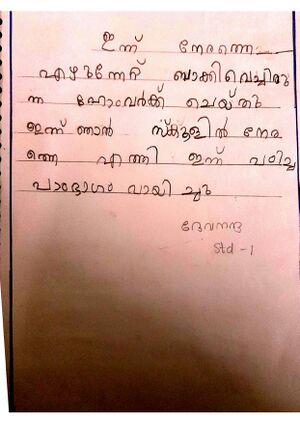 ഇന്ന് നേരത്തെ
എഴുന്നേറ്റ് ബാക്കിവെച്ചിരു
ന്ന ഹോംവർക്ക് ചെയ്തു
ഇന്ന് ഞാൻ സ്കൂളിൽ നേര
ത്തെ എത്തി ഇന്ന് പഠിച്ച
പാഠഭാഗം വായിച്ചു
ദേവനന്ദ
Std - 1